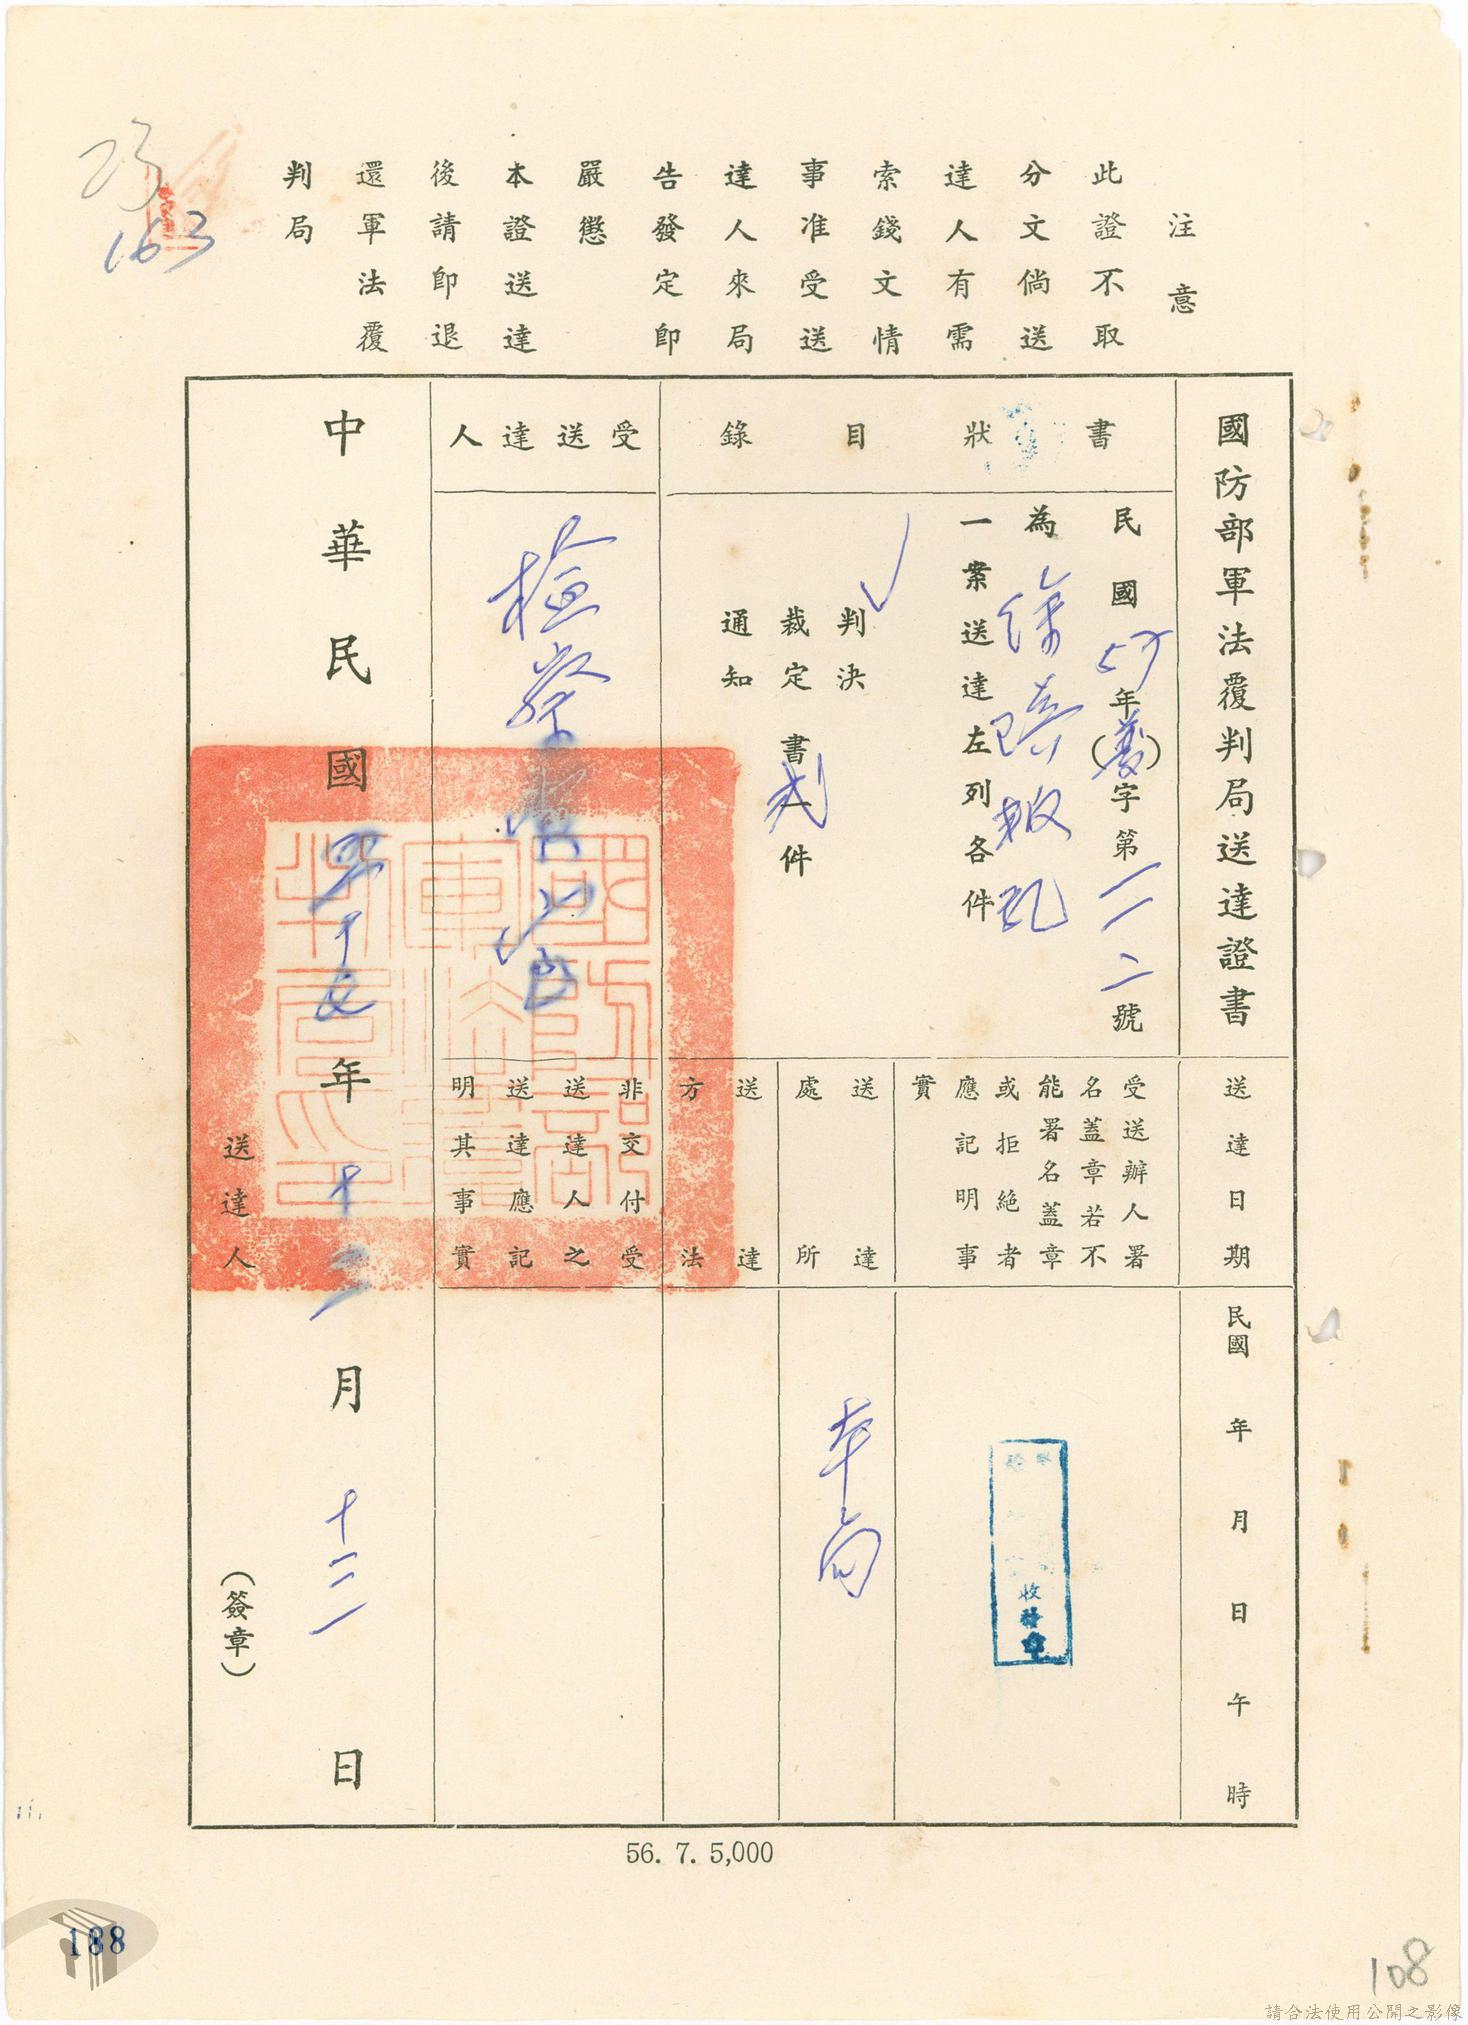 注意
此證不取
分文倘送
達人有需
索錢文情
事准受送
達人來局
告發定即
嚴懲
本證送達
後請即退
還軍法覆
判局
163
國防部軍法覆判局送達證書
書狀目錄
民國57年(覆)字第一一二號
為徐瑛叛亂
一案送達左列各件
判決
裁定書貳件
通知
受送達人
檢察官
送達日期
民國 年 月 日 午 時
受送辦人署
名蓋章若不
能署名蓋章
或拒絕者
應記明事
實
收發章
送達
處所
本局
送達
方法
非交付受
送達人之
送達應記
明其事實
中華民國四十七年十二月十二日
送達人 (簽章)
56. 7. 5,000
188
108
請合法使用公開之影像